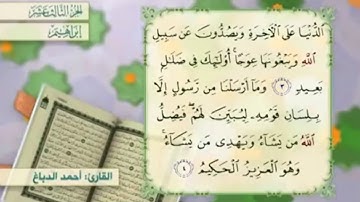 الجزء الثالث عشر
إبراهيم
ٱلدُّنْيَا عَلَى ٱلْآخِرَةِ وَيَصُدُّونَ عَن سَبِيلِ
ٱللَّهِ وَيَبْغُونَهَا عِوَجًا ۚ أُو۟لَـٰٓئِكَ فِى ضَلَـٰلٍۭ
بَعِيدٍ ٣ وَمَآ أَرْسَلْنَا مِن رَّسُولٍ إِلَّا
بِلِسَانِ قَوْمِهِۦ لِيُبَيِّنَ لَهُمْ ۖ فَيُضِلُّ
ٱللَّهُ مَن يَشَآءُ وَيَهْدِى مَن يَشَآءُ ۚ
وَهُوَ ٱلْعَزِيزُ ٱلْحَكِيمُ ٤
القارئ: أحمد الدباغ